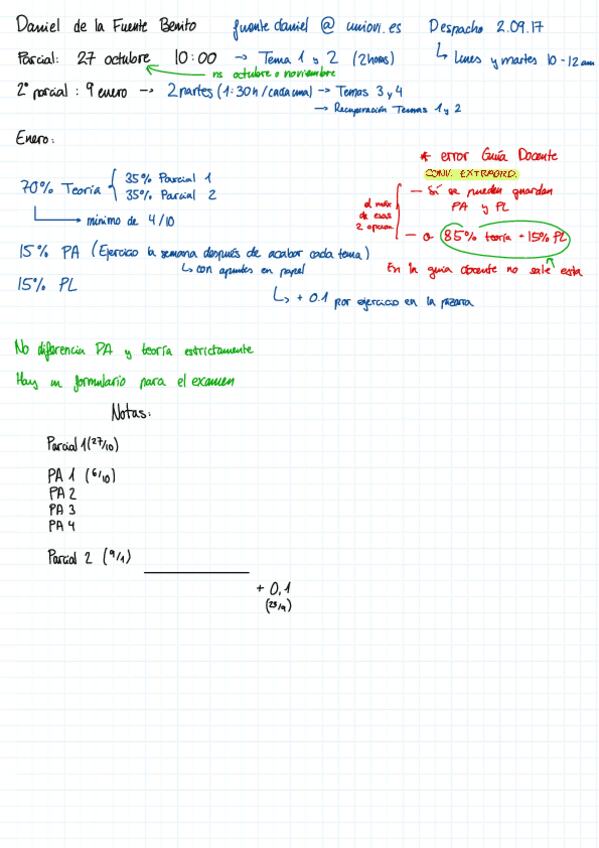 Daniel de la Fuente Benito fuente daniel @ uniovi.es Despacho 2.09.17
↳ lunes y martes 10-12 am
Parcial: 27 octubre 10:00 → Tema 1 y 2 (2 horas)
ns octubre o noviembre
2º parcial: 9 enero → 2 partes (1:30h/cada una) → Temas 3 y 4
→ Recuperación Temas 1 y 2
Enero:
70% Teoría { 35% Parcial 1
35% Parcial 2
mínimo de 4/10
15% PA (Ejercicio la semana después de acabar cada tema)
↳ con apuntes en papel
15% PL
↳ + 0.1 por ejercicio en la pizarra
* error Guía Docente
CONV. EXTRAORD.
el máx de esas 2 opcion
— Sí se pueden guardar
PA y PL
— o 85% teoría + 15% PL
En la guía docente no sale esta
No diferencia PA y teoría estrictamente
Hay un formulario para el examen
Notas:
Parcial 1 (27/10)
PA 1 (6/10)
PA 2
PA 3
PA 4
Parcial 2 (9/1)
+ 0,1
(25/9)